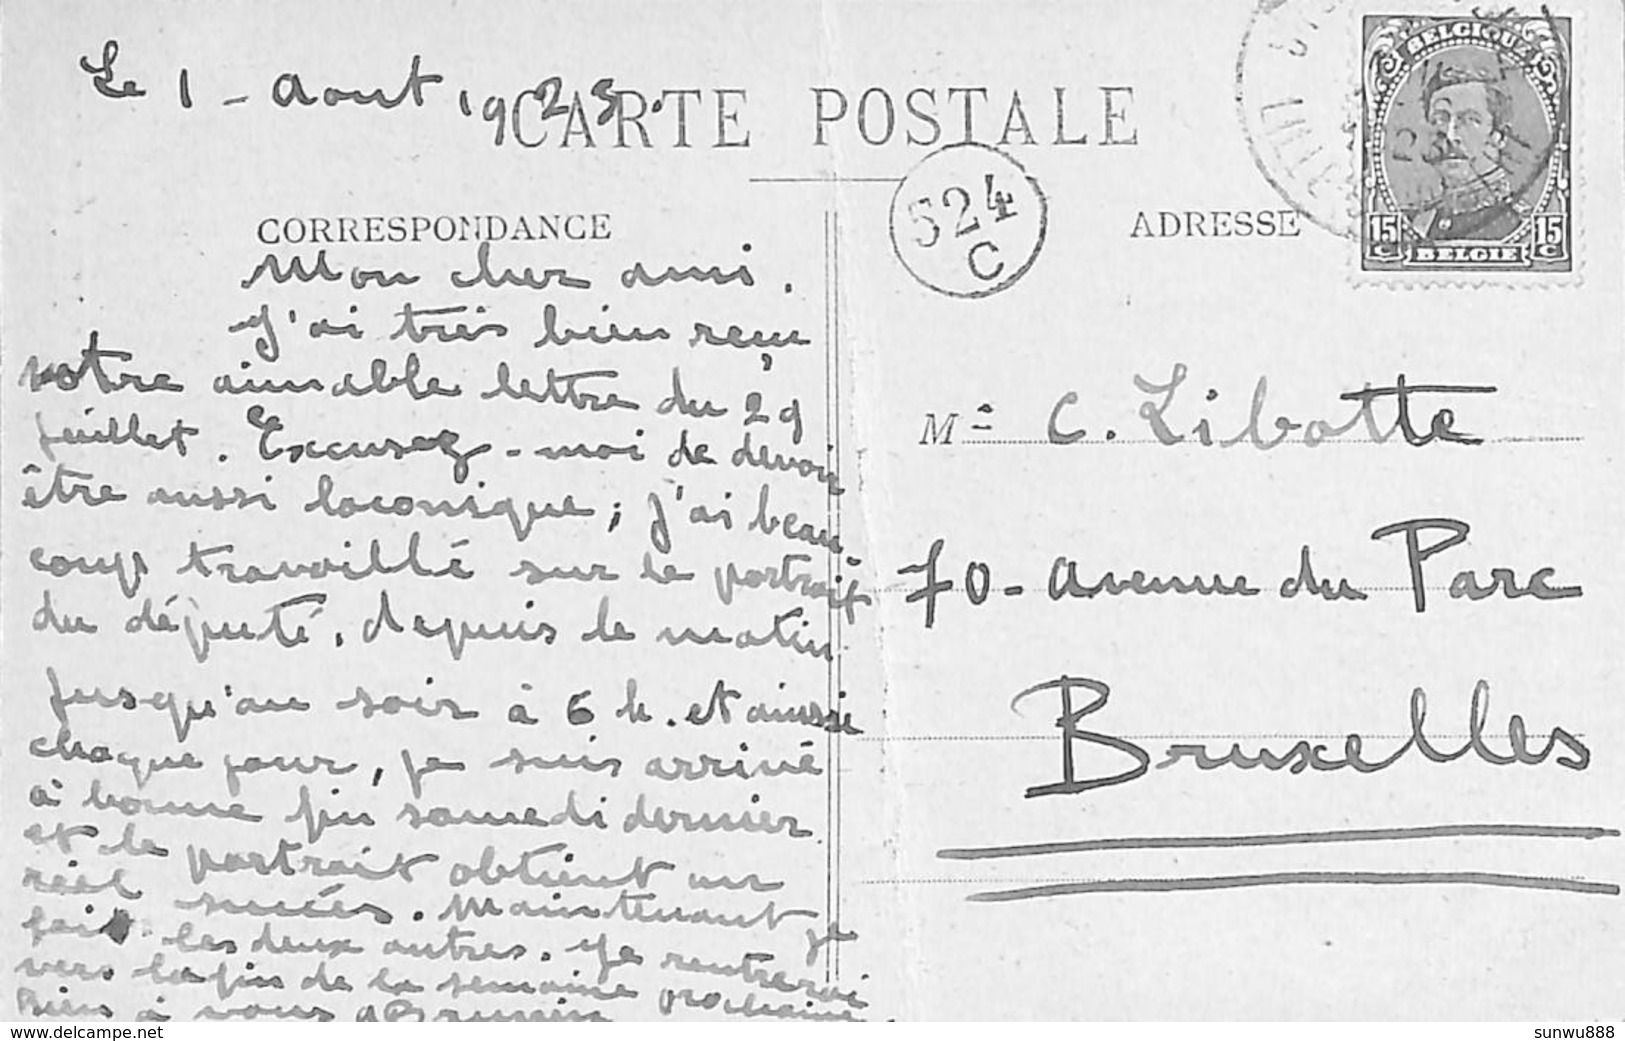 Le 1 - Aout 1923.
CARTE POSTALE
CORRESPONDANCE
Mon cher ami,
J'ai très bien reçu
votre aimable lettre du 29
juillet. Excusez-moi de devoir
être aussi laconique; j'ai beau-
coup travaillé sur le portrait
du député, depuis le matin
jusqu'au soir à 6 h. et ainsi
chaque jour, je suis arrivé
à bonne fin samedi dernier
et le portrait obtient un
réel succès. Maintenant je
fais les deux autres. Je rentrerai
vers la fin de la semaine prochaine
Bien à vous
524
C
ADRESSE
BELGIQUE
15 C
15 C
BELGIE
M C. Libotte
70 - Avenue du Parc
Bruxelles
www.delcampe.net
sunwu888